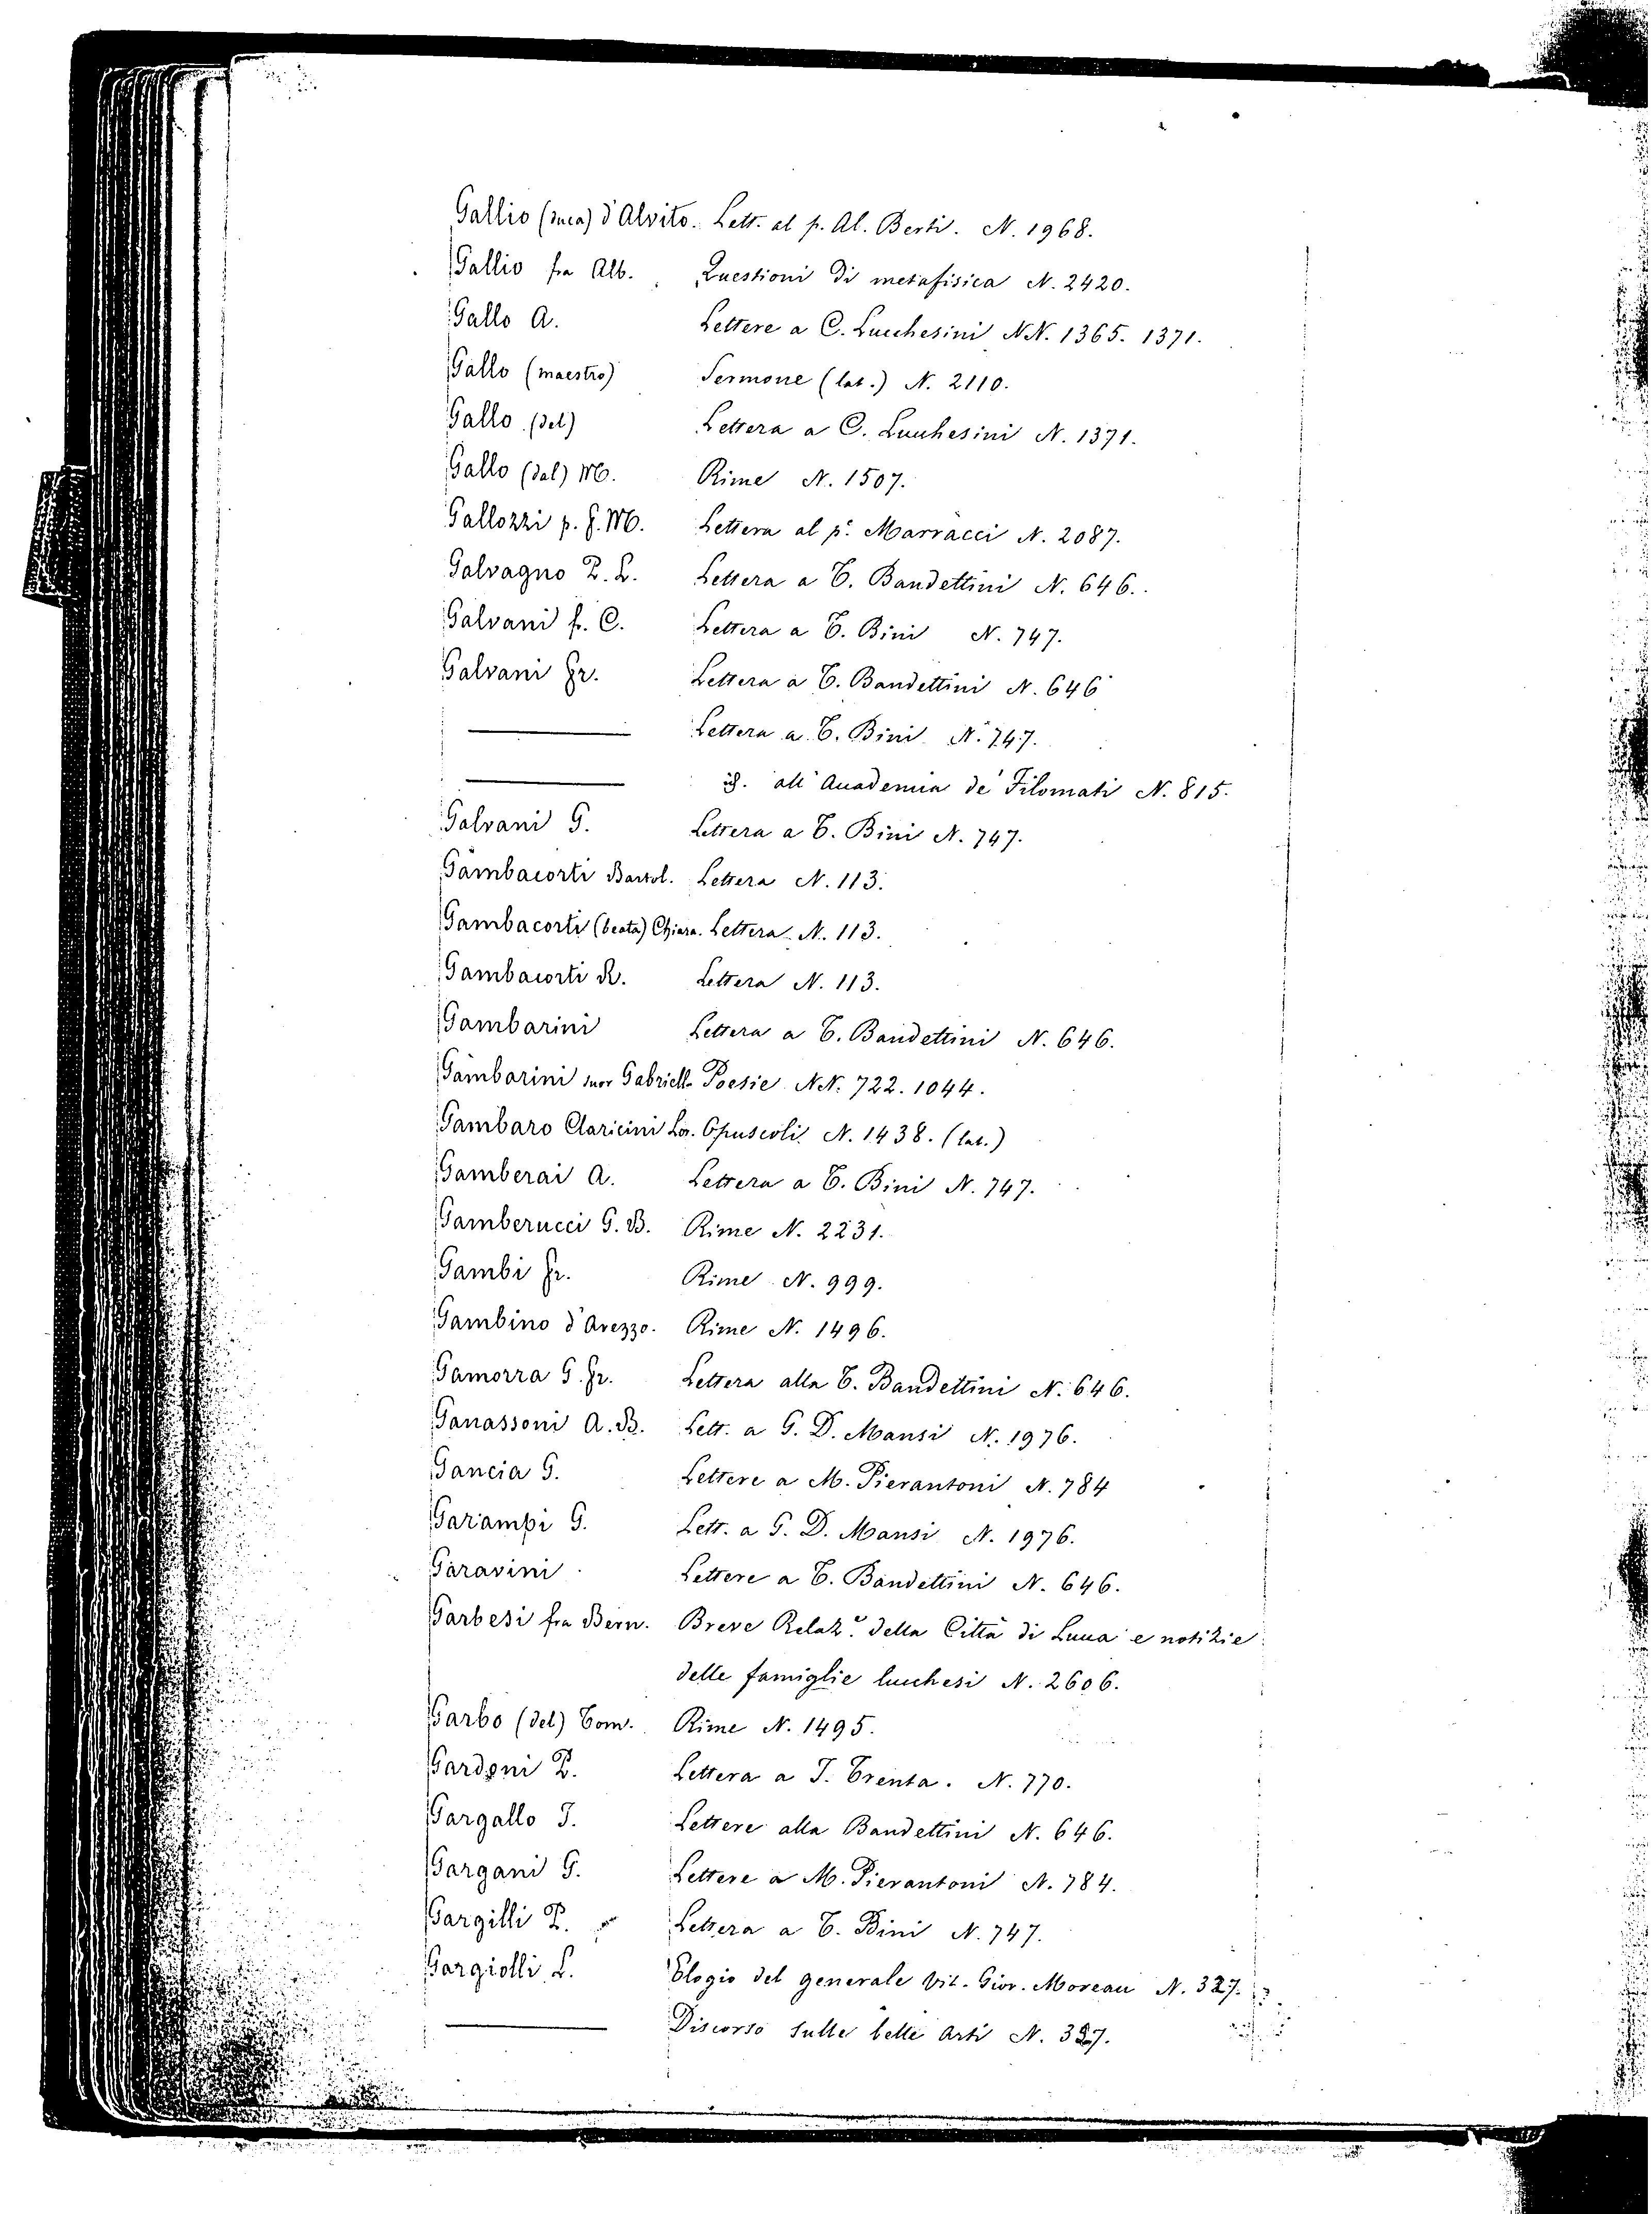 Gallio (duca) d'Alvito. Lett. al p. Al. Berti. N. 1968.
Gallio fra Alb. Questioni di metafisica N. 2420.
Gallo A. Lettere a C. Lucchesini NN. 1365. 1371.
Gallo (maestro) Sermone (lat.) N. 2110.
Gallo (del) Lettera a C. Lucchesini N. 1371.
Gallo (dal) M. Rime N. 1507.
Gallozzi p. f. M. Lettera al p. Marracci N. 2087.
Galvagno P. L. Lettera a T. Bandettini N. 646.
Galvani f. C. Lettera a T. Bini N. 747.
Galvani Fr. Lettera a T. Bandettini N. 646
——— Lettera a T. Bini N. 747.
——— id. all'Accademia de' Filomati N. 815.
Galvani G. Lettera a T. Bini N. 747.
Gambacorti Bartol. Lettera N. 113.
Gambacorti (beata) Chiara. Lettera N. 113.
Gambacorti R. Lettera N. 113.
Gambarini Lettera a T. Bandettini N. 646.
Gambarini suor Gabriell. Poesie NN. 722. 1044.
Gambaro Claricini Lor. Opuscoli N. 1438. (lat.)
Gamberai A. Lettera a T. Bini N. 747.
Gamberucci G. B. Rime N. 2231.
Gambi Fr. Rime N. 999.
Gambino d'Arezzo. Rime N. 1496.
Gamorra G. Fr. Lettera alla T. Bandettini N. 646.
Ganassoni A. B. Lett. a G. D. Mansi N. 1976.
Gancia G. Lettere a M. Pierantoni N. 784
Garampi G. Lett. a G. D. Mansi N. 1976.
Garavini Lettere a T. Bandettini N. 646.
Garbesi fra Bern. Breve Relaz.e della Città di Lucca e notizie
delle famiglie lucchesi N. 2606.
Garbo (del) Tom. Rime N. 1495.
Gardoni P. Lettera a T. Trenta. N. 770.
Gargallo T. Lettere alla Bandettini N. 646.
Gargani G. Lettere a M. Pierantoni N. 784.
Gargilli P. Lettera a T. Bini N. 747.
Gargiolli L. Elogio del generale Vit. Giov. Moreau N. 327.
——— Discorso sulle belle arti N. 327.